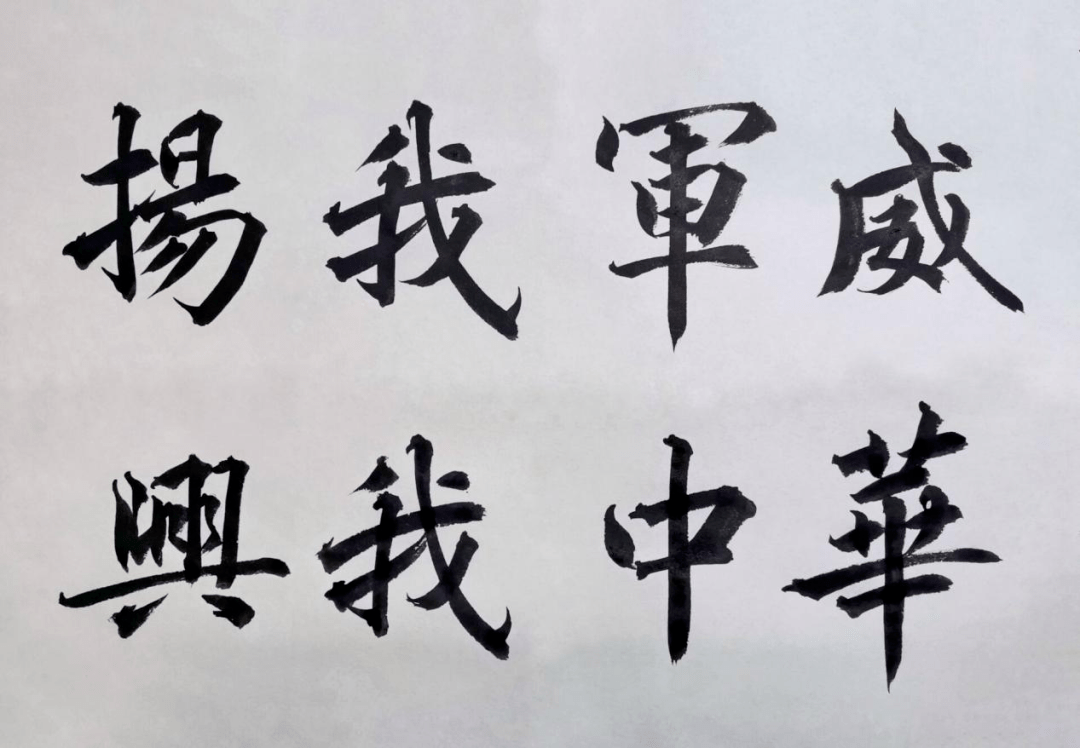 揚我軍威
興我中華